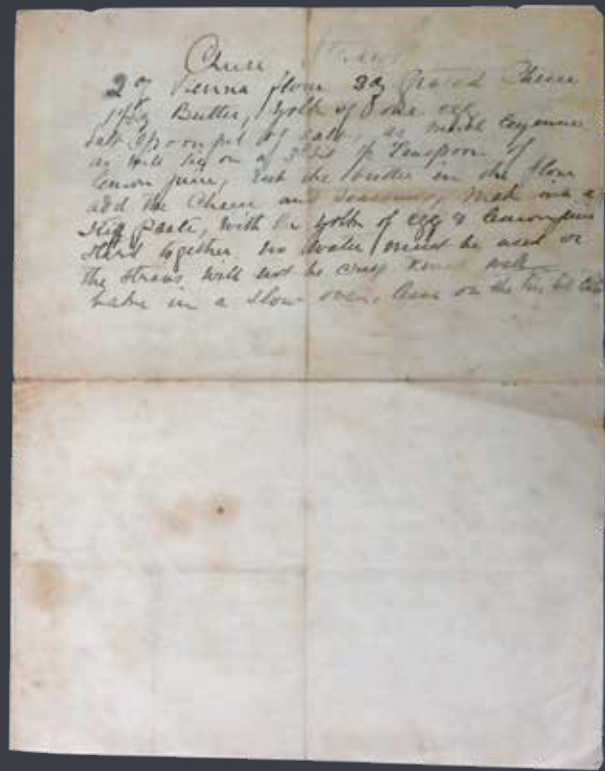 Cheese Straws
2 oz Vienna flour 3 oz Grated Cheese
1½ oz Butter, yolk of one egg
Salt spoonful of salt, as much Cayenne
as will lie on a 3d bit ½ Teaspoon of
lemon juice, Rub the butter in the flour
add the Cheese and Seasoning, Make into a
stiff paste, with the yolk of egg & lemon juice
together no water must be used or
the straws will not be crisp Knead well
bake in a slow oven, on the tin till